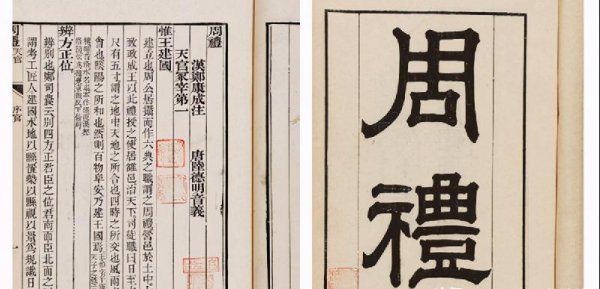 周禮
周禮
漢鄭康成注 唐陸德明音義
天官冢宰第一
惟王建國
建立也周公居攝而作六典之職謂之周禮營邑於土中
致政成王以此禮授之使居雒邑治天下司徒職曰日至
尺有五寸謂之地中天地之所合也四時之所交也風雨
會也陰陽之所和也然則百物阜安乃建王國焉
辨方正位
辨別也鄭司農云別四方正君臣之位君南面臣北面之
謂考工匠人建國水地以縣置槷以縣眡以景為規識日
周禮 天官 序官 一